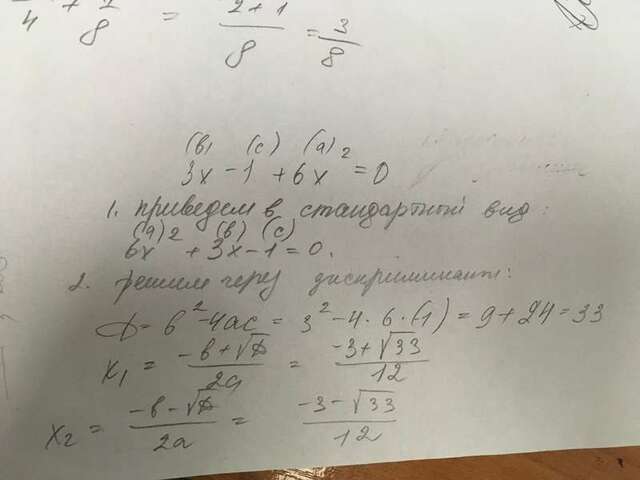 1/4 + 1/8 = (2+1)/8 = 3/8
(в) (с) (а)
3x - 1 + 6x² = 0
1. приведем в стандартный вид:
(а) (в) (с)
6x² + 3x - 1 = 0.
2. решим через дискриминант:
D = b² - 4ac = 3² - 4 · 6 · (1) = 9 + 24 = 33
x₁ = (-b + √D)/2a = (-3 + √33)/12
x₂ = (-b - √D)/2a = (-3 - √33)/12